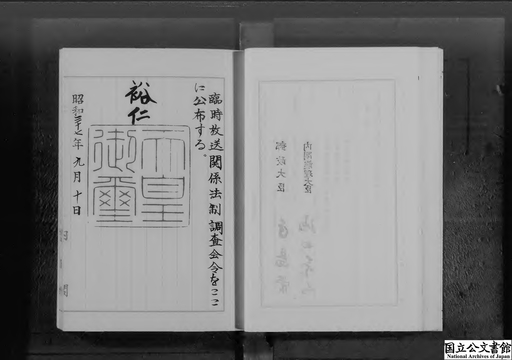 臨時放送関係法制調査会令をここ
に公布する。
裕仁
天皇
御璽
昭和三十七年九月十日
内閣総理大臣
郵政大臣
国立公文書館
National Archives of Japan